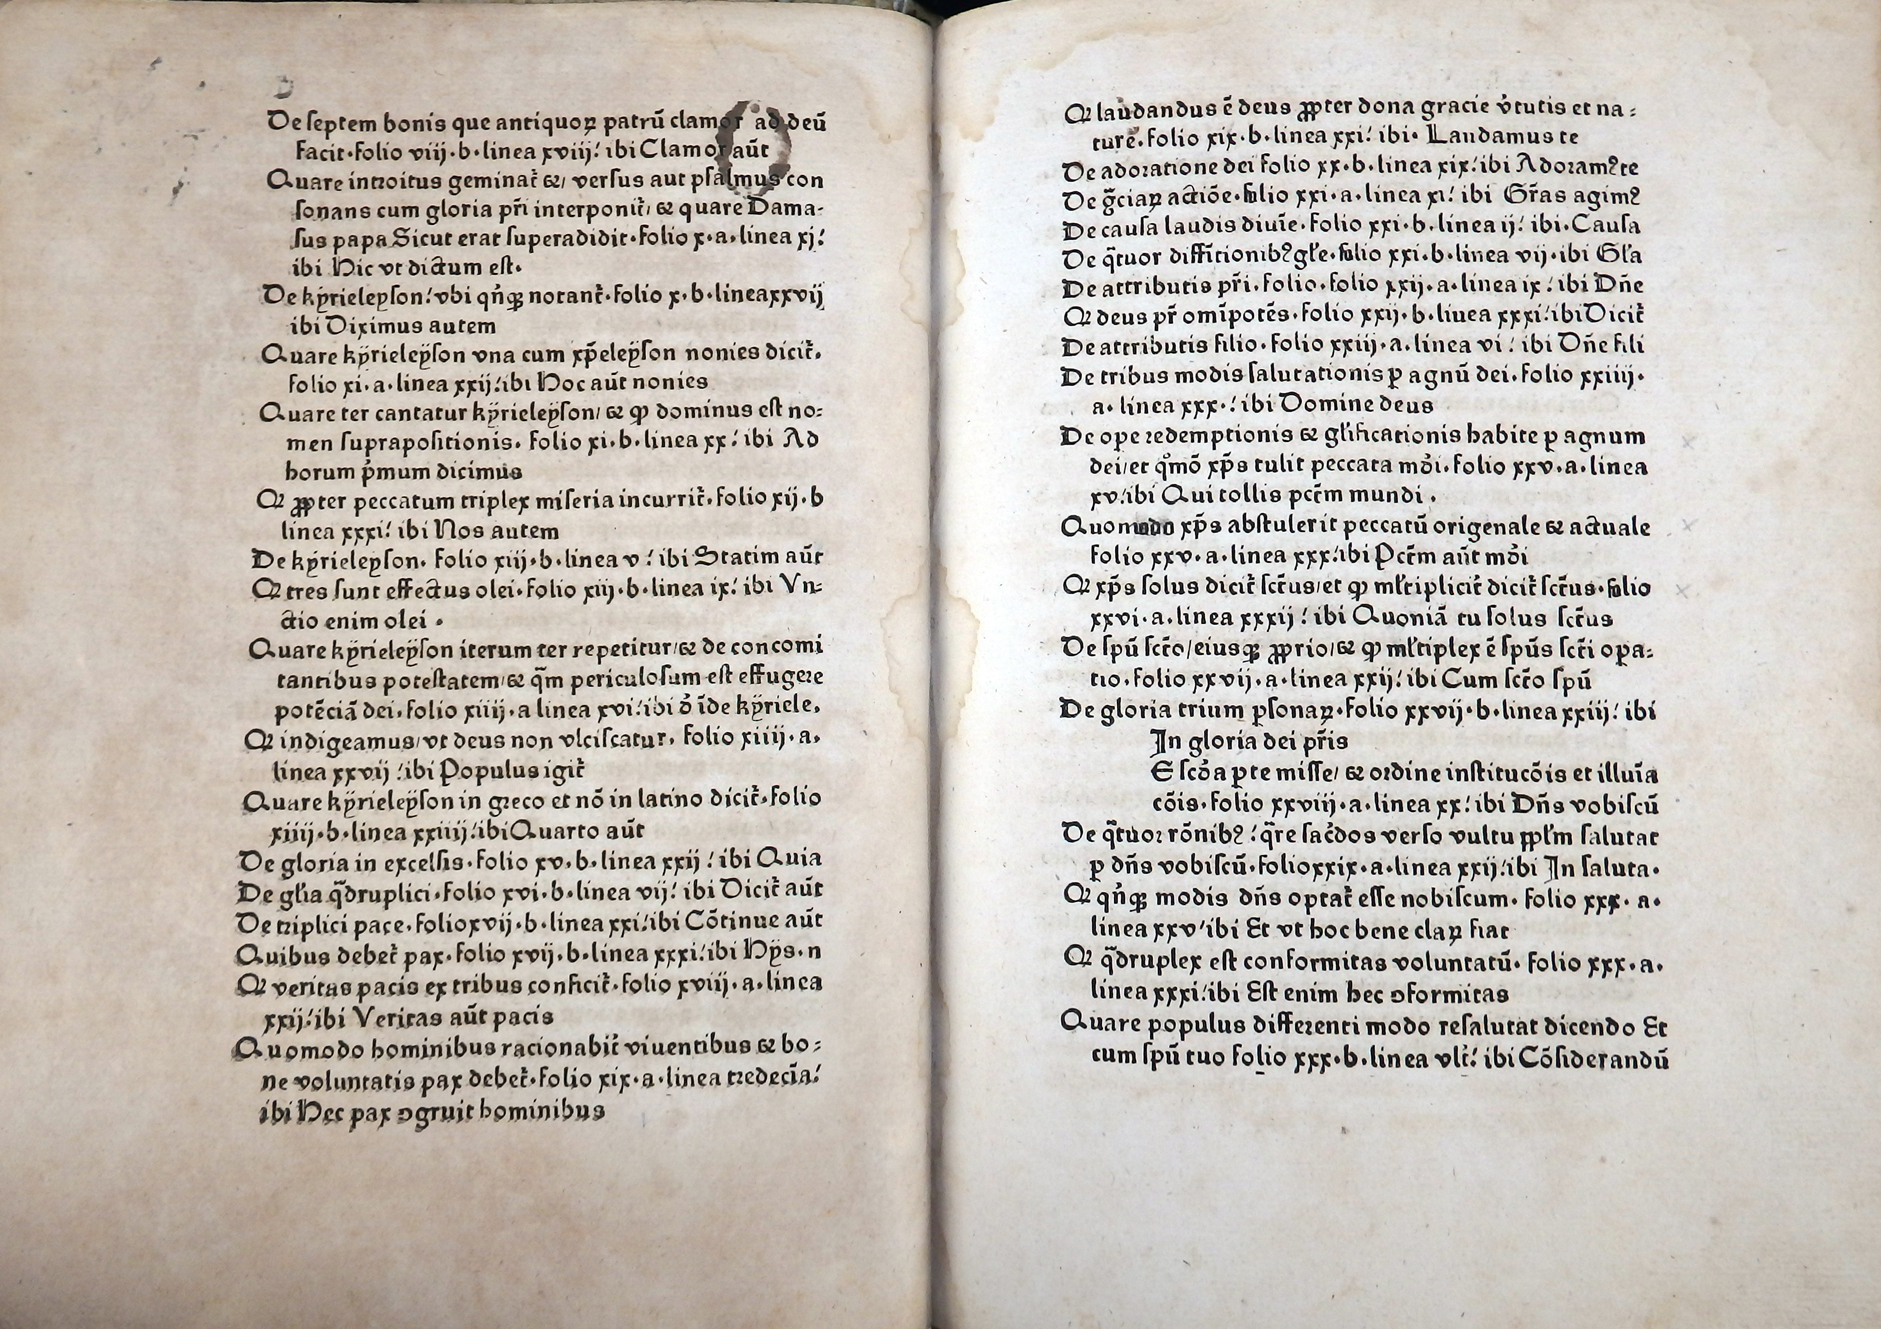 De septem bonis que antiquoꝝ patrū clamor ad deū
facit·folio viij·b·linea xviij! ibi Clamor aūt
Quare introitus geminat᷑ ⁊/ versus aut psalmus con
sonans cum gloria pr̄i interponit᷑/ ⁊ quare Dama-
sus papa Sicut erat superadidit·folio x·a·linea xj!
ibi Hic vt dictum est·
De kyrieleyson! vbi qn̄qꝫ notant᷑·folio x·b·linea xxvij
ibi Diximus autem
Quare kyrieleyson vna cum xp̄eleyson nonies dicit᷑·
folio xi·a·linea xxij! ibi Hoc aūt nonies
Quare ter cantatur kyrieleyson/ ⁊ ꝙ dominus est no:
men suprapositionis· folio xi·b·linea xx! ibi Ad
horum pͥmum dicimus
Qꝛ ꝓpter peccatum triplex miseria incurrit᷑·folio xij·b
linea xxxi! ibi Nos autem
De kyrieleyson· folio xiij·b·linea v! ibi Statim aūt
Qꝛ tres sunt effectus olei·folio xiij·b·linea ix! ibi Vn-
ctio enim olei·
Quare kyrieleyson iterum ter repetitur/⁊ de concomi
tantibus potestatem/⁊ qm̄ periculosum est effugere
potēciā dei·folio xiiij·a linea xvi! ibi ð īde kyriele·
Qꝛ indigeamus/vt deus non vlciscatur· folio xiiij·a·
linea xxvij! ibi Populus igit᷑
Quare kyrieleyson in greco et nō in latino dicit᷑·folio
xiiij·b·linea xxiiij! ibi Quarto aūt
De gloria in excelsis·folio xv·b·linea xxij! ibi Quia
De gl̄ia qͣdruplici·folio xvi·b·linea vij! ibi Dicit᷑ aūt
De triplici pace·folio xvij·b·linea xxi! ibi Cōtinue aūt
Quibus debet᷑ pax·folio xvij·b·linea xxxi! ibi Hys·n
Qꝛ veritas pacis ex tribus conficit᷑·folio xviij·a·linea
xxij! ibi Veritas aūt pacis
Quomodo hominibus racionabit᷑ viuentibus ⁊ bo:
ne voluntatis pax debet᷑·folio xix·a·linea tredecīa!
ibi Hec pax ꝯgruit hominibus
Qꝛ laudandus ē deus ꝓpter dona gracie vͥtutis et na:
ture·folio xix·b·linea xxi! ibi· Laudamus te
De adoratione dei folio xx·b·linea xix! ibi Adoramꝰ te
De gr̄ciaꝝ actiōe·folio xxi·a·linea xi! ibi Gr̄as agimꝰ
De causa laudis diuīe·folio xxi·b·linea ij! ibi·Causa
De qͣtuor diffīitionibꝰ gl̄e·folio xxi·b·linea vij·ibi Gl̄a
De attributis pr̄i·folio·folio xxij·a·linea ix! ibi Dn̄e
Qꝛ deus pr̄ omīpotēs·folio xxij·b·liuea xxxi! ibi Dicit᷑
De attributis filio·folio xxiij·a·linea vi! ibi Dn̄e fili
De tribus modis salutationis ꝑ agnū dei·folio xxiiij·
a·linea xxx·! ibi Domine deus
De ope redemptionis ⁊ gl̄ificationis habite ꝑ agnum
dei/et qͦmō xp̄s tulit peccata mōi·folio xxv·a·linea
xv! ibi Qui tollis pcc̄m mundi·
Quomodo xp̄s abstulerit peccatū origenale ⁊ actuale
folio xxv·a·linea xxx! ibi Pcc̄m aūt mōi
Qꝛ xp̄s solus dicit᷑ sct̄us/et ꝙ ml̄tiplicit᷑ dicit᷑ sct̄us·folio
xxvi·a·linea xxxij! ibi Quoniā tu solus sct̄us
De spū sct̄o/eiusqꝫ ꝓprio/⁊ ꝙ ml̄tiplex ē spūs sct̄i opa:
tio·folio xxvij·a·linea xxij! ibi Cum sct̄o spū
De gloria trium ꝑsonaꝝ·folio xxvij·b·linea xxiij! ibi
In gloria dei pr̄is
E scd̄a ꝑte misse/ ⁊ ordine institucōis et illuīa
cōis·folio xxviij·a·linea xx! ibi Dn̄s vobiscū
De qͣtuor rōnibꝰ! qͣre sac̄dos verso vultu ppl̄m salutat
ꝑ dn̄s vobiscū·folio xxix·a·linea xxij! ibi In saluta·
Qꝛ qn̄qꝫ modis dn̄s optat᷑ esse nobiscum· folio xxx· a·
linea xxv! ibi Et vt hoc bene claꝝ fiat
Qꝛ qͣdruplex est conformitas voluntatū· folio xxx·a·
linea xxxi! ibi Est enim hec ꝯformitas
Quare populus differenti modo resalutat dicendo Et
cum spū tuo folio xxx·b·linea vlt᷑! ibi Cōsiderandū